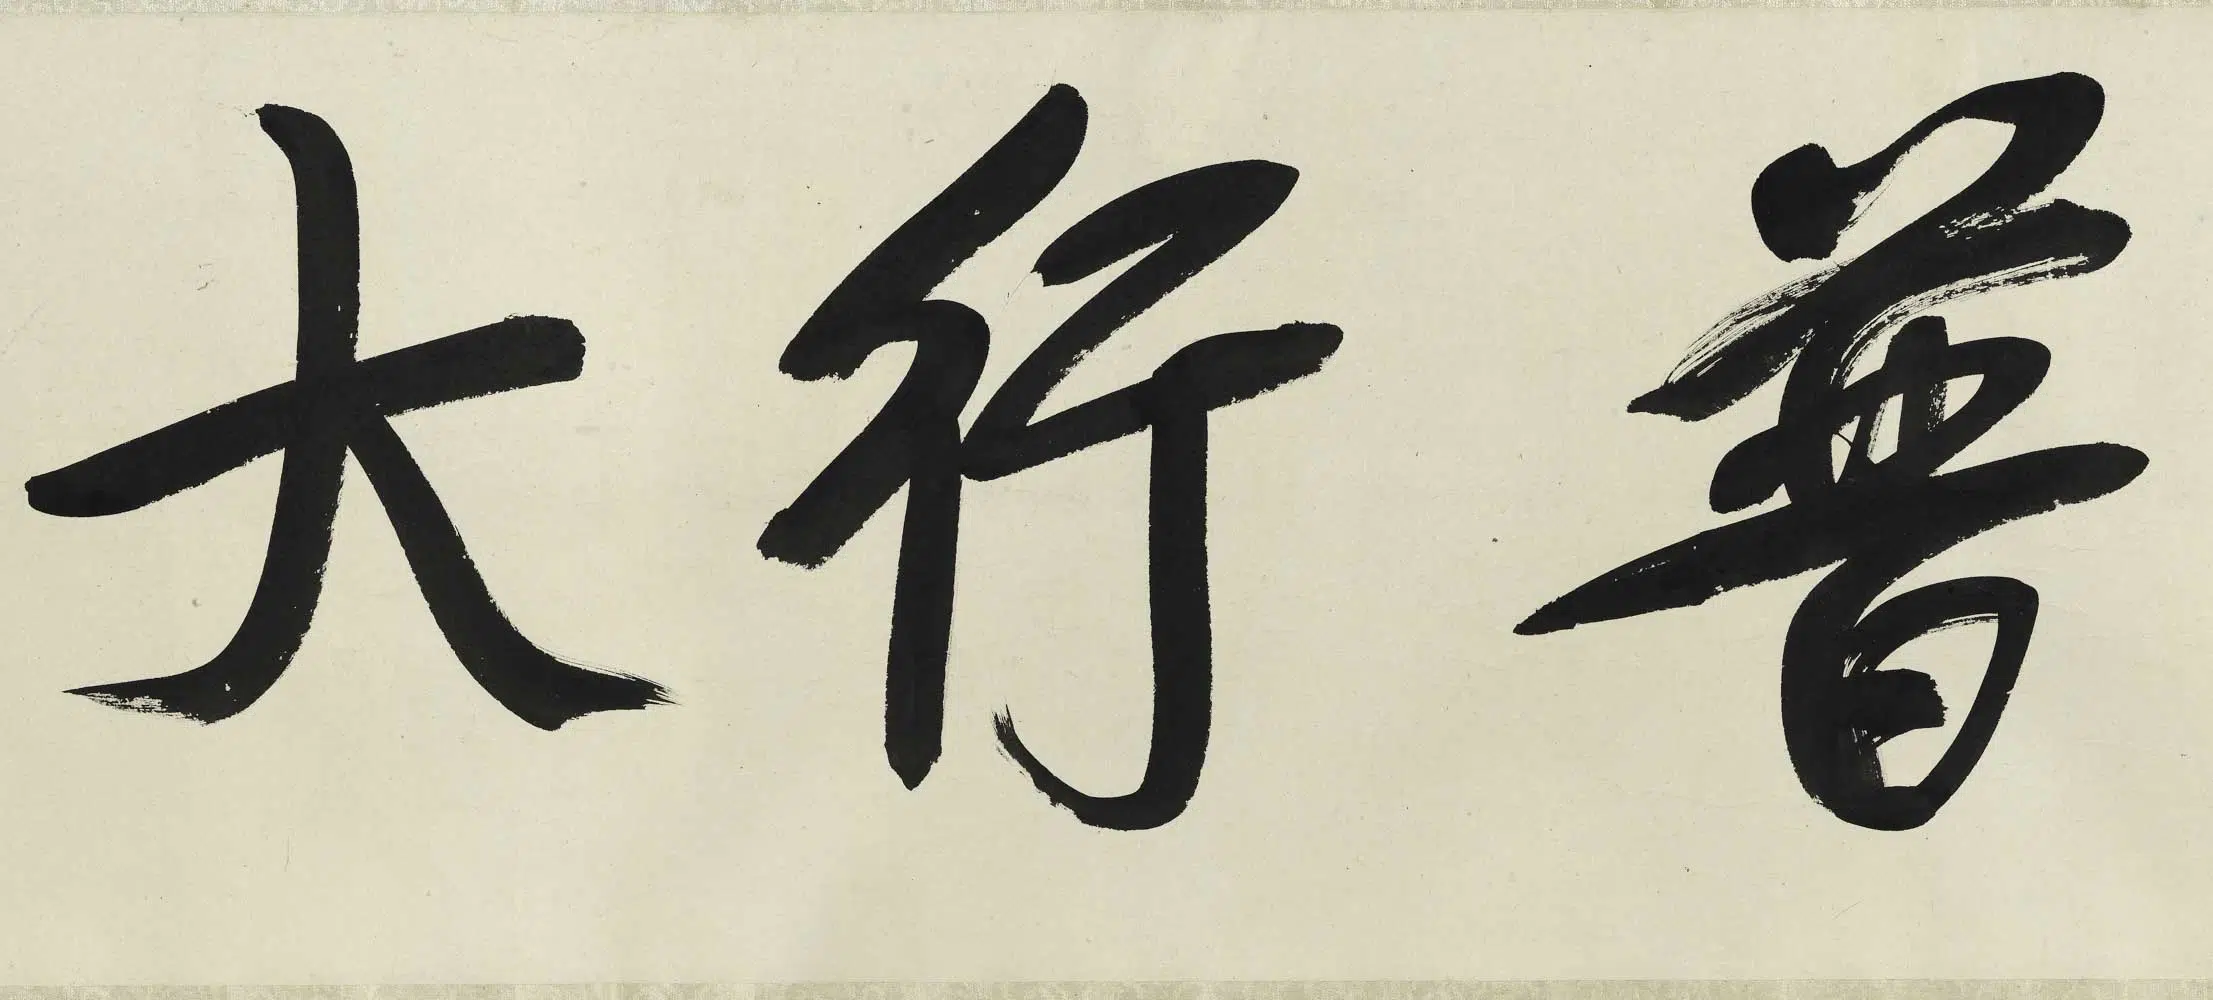 普行大